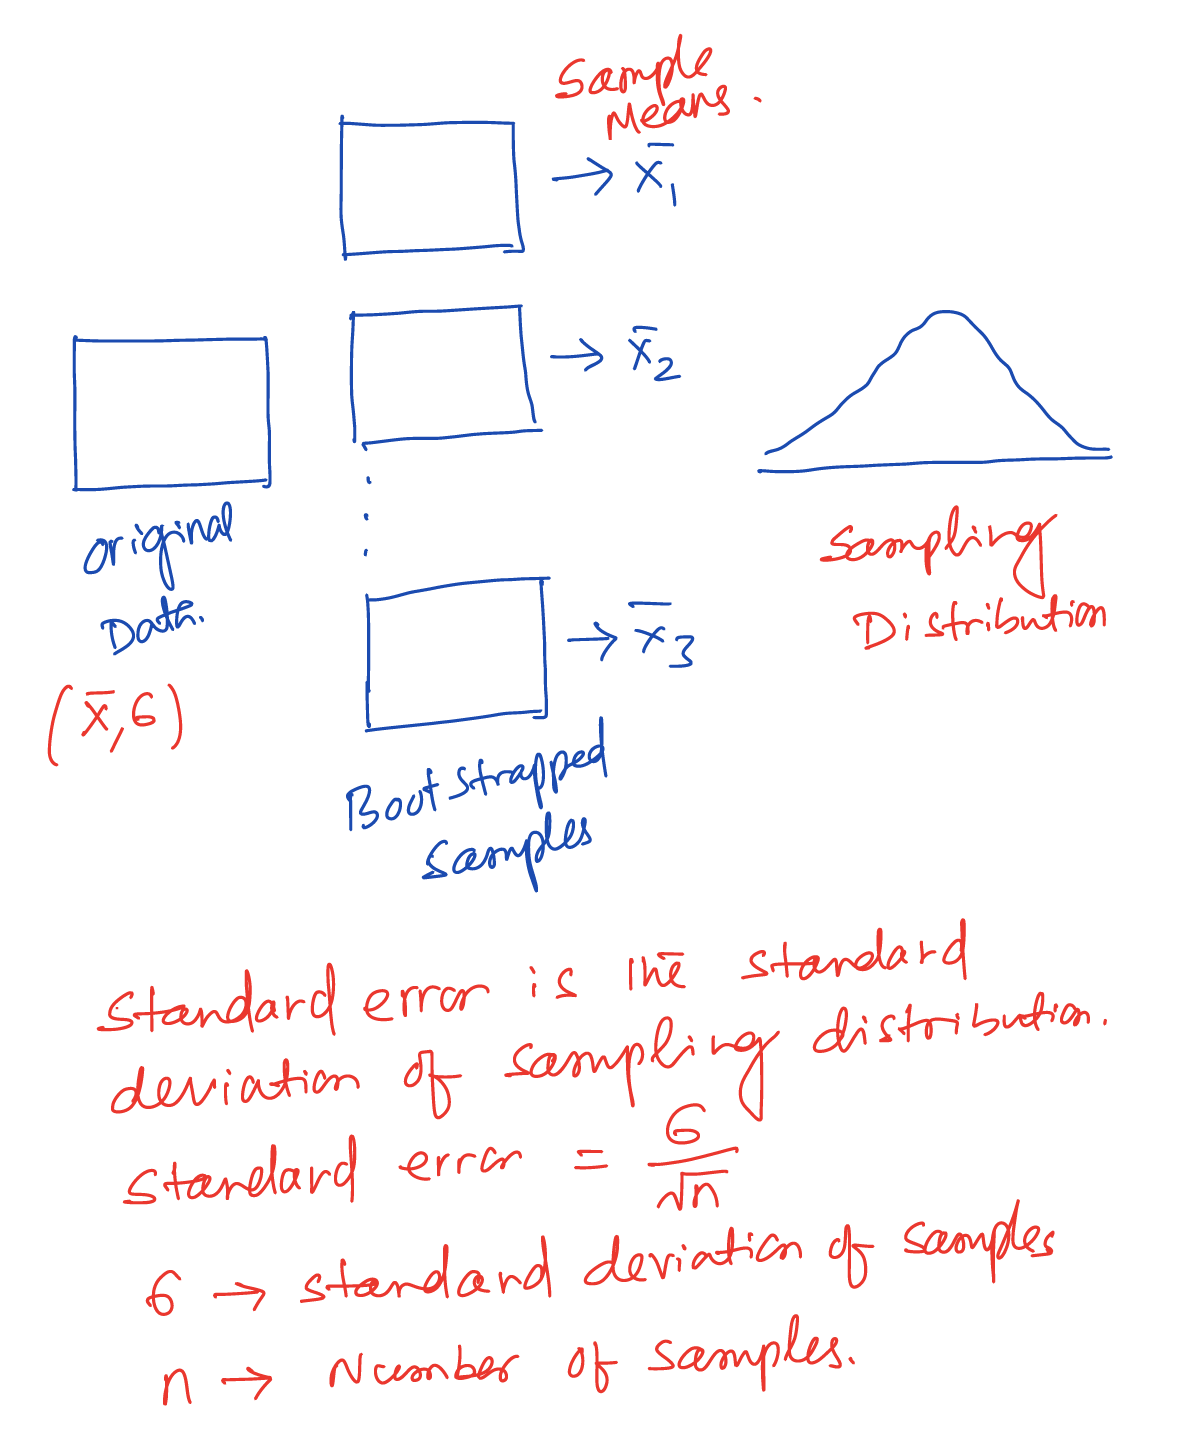 Sample
Means.
→ x̄₁
→ x̄₂
original
Data.
(x̄, σ)
→ x̄₃
Bootstrapped
samples
Sampling
Distribution
Standard error is the standard
deviation of sampling distribution.
Standard error = σ/√n
σ → standard deviation of samples
n → Number of samples.